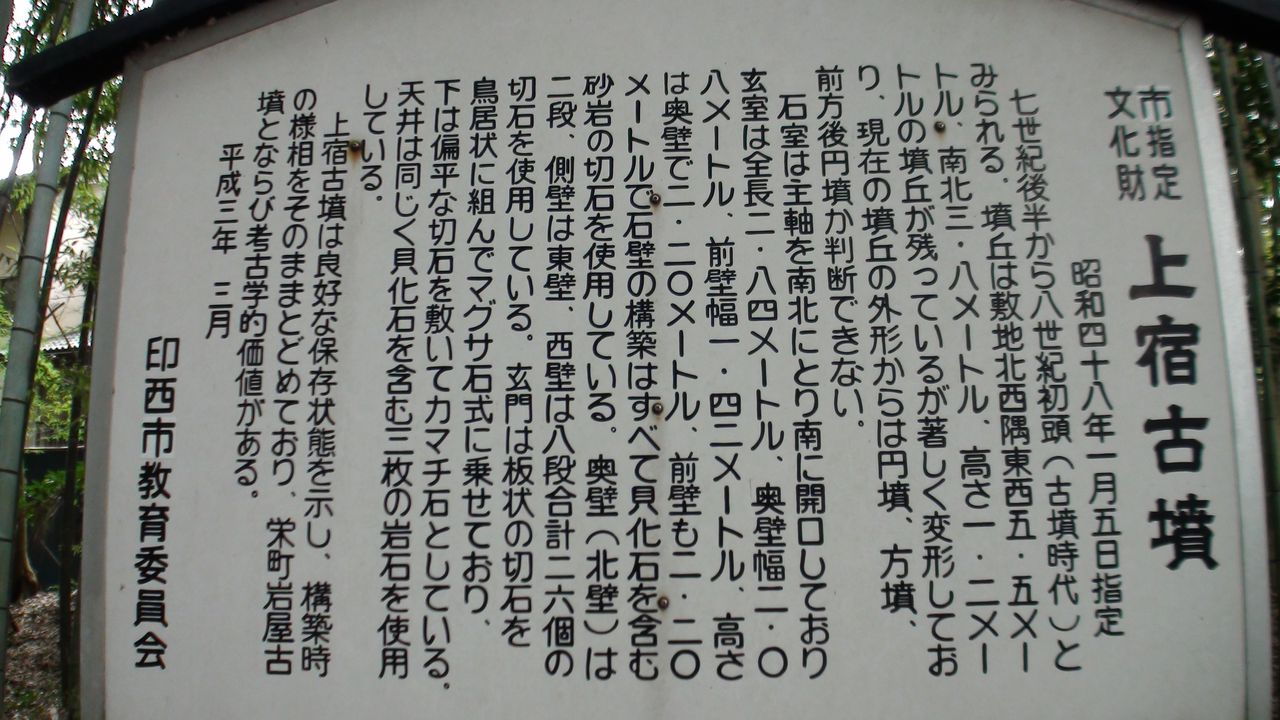 市指定
文化財
上宿古墳
昭和四十八年一月五日指定
七世紀後半から八世紀初頭(古墳時代)と
みられる。墳丘は敷地北西隅東西五・五メー
トル、南北三・八メートル、高さ一・二メー
トルの墳丘が残っているが著しく変形してお
り、現在の墳丘の外形からは円墳、方墳、
前方後円墳か判断できない。
石室は主軸を南北にとり南に開口しており
玄室は全長二・八四メートル、奥壁幅二・〇
八メートル、前壁幅一・四二メートル、高さ
は奥壁で二・二〇メートル、前壁も二・二〇
メートルで石壁の構築はすべて貝化石を含む
砂岩の切石を使用している。奥壁(北壁)は
二段、側壁は東壁、西壁は八段合計二六個の
切石を使用している。玄門は板状の切石を
鳥居状に組んでマグサ石式に乗せており、
下は偏平な切石を敷いてカマチ石としている。
天井は同じく貝化石を含む三枚の岩石を使用
している。
上宿古墳は良好な保存状態を示し、構築時
の様相をそのままとどめており、栄町岩屋古
墳とならび考古学的価値がある。
平成三年 三月
印西市教育委員会